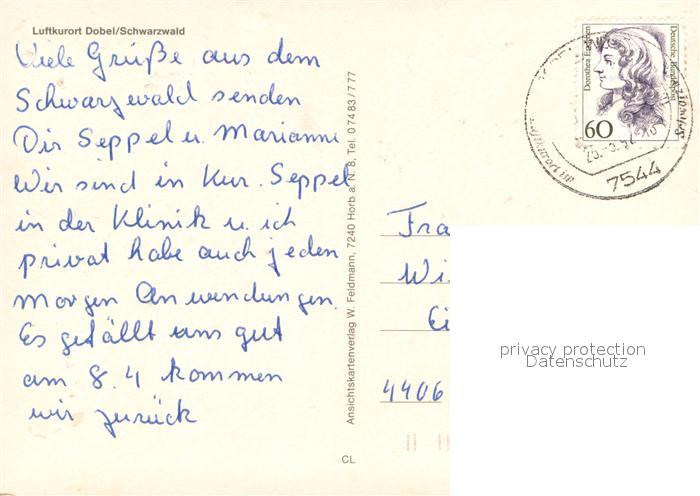 Luftkurort Dobel/Schwarzwald
Viele Grüße aus dem
Schwarzwald senden
Dir Seppel u. Marianne
Wir sind in Kur. Seppel
in der Klinik u. ich
privat habe auch jeden
Morgen Anwendungen.
Es gefällt uns gut
am 8.4 kommen
wir zurück
Ansichtskartenverlag W. Feldmann, 7240 Horb a. N. 8, Tel. 07483/777
CL
Dorothea Erxleben
Deutsche Bundespost
60
7544
Fra
Wi
Ei
4406
privacy protection
Datenschutz